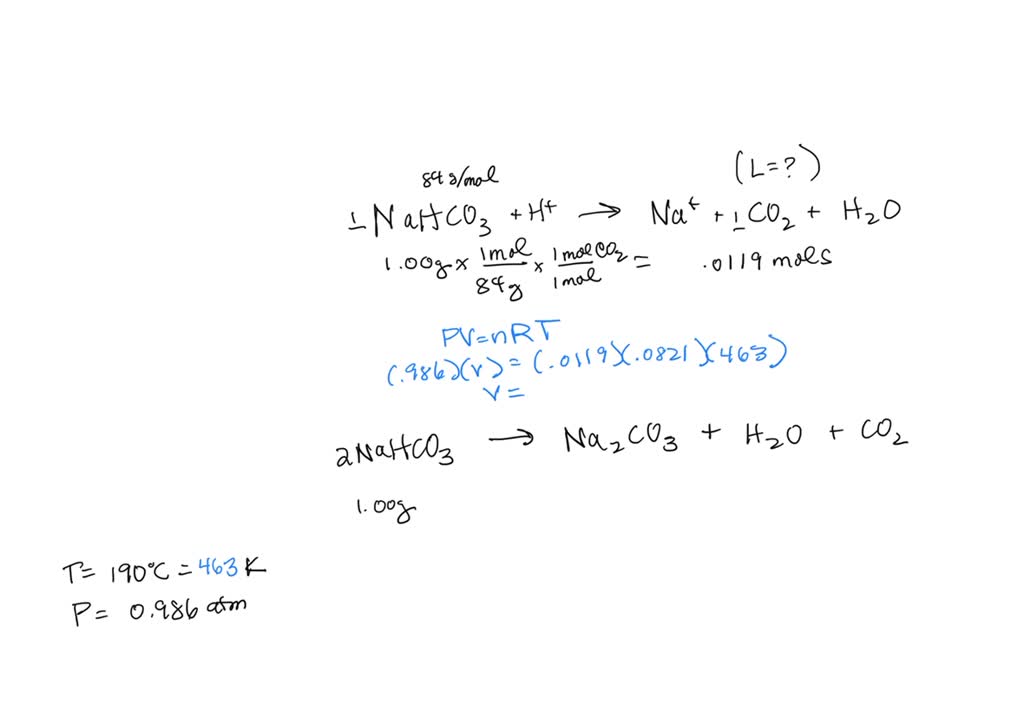 (L=?)
84 g/mol
1 NaHCO₃ + H⁺ → Na⁺ + 1CO₂ + H₂O
1.00g x 1mol/84g x 1molCO₂/1mol = .0119 mols
PV=nRT
(.986)(V) = (.0119)(.0821)(463)
V =
2NaHCO₃ → Na₂CO₃ + H₂O + CO₂
1.00g
T= 190°C = 463 K
P= 0.986 atm